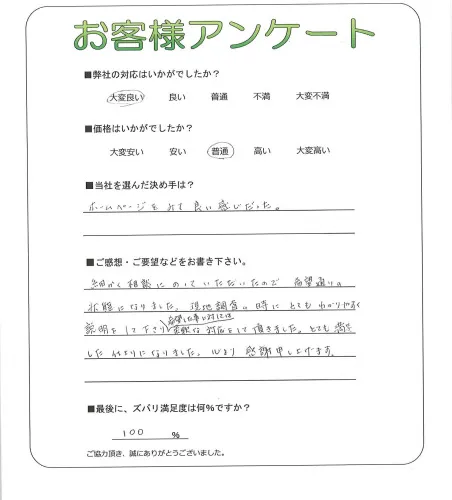 お客様アンケート
■弊社の対応はいかがでしたか？
大変良い 良い 普通 不満 大変不満
■価格はいかがでしたか？
大変安い 安い 普通 高い 大変高い
■当社を選んだ決め手は？
ホームページをみて良い感じだった。
■ご感想・ご要望などをお書き下さい。
細かく相談にのっていただいたので 希望通りの
状態になりました。現地調査の時にとてもわかりやすく
希望仕事に対しては
説明をして下さり 柔軟な対応をして頂きました。とても満足
した仕上りになりました。心より 感謝申し上げます。
■最後に、ズバリ満足度は何％ですか？
100 ％
ご協力頂き、誠にありがとうございました。